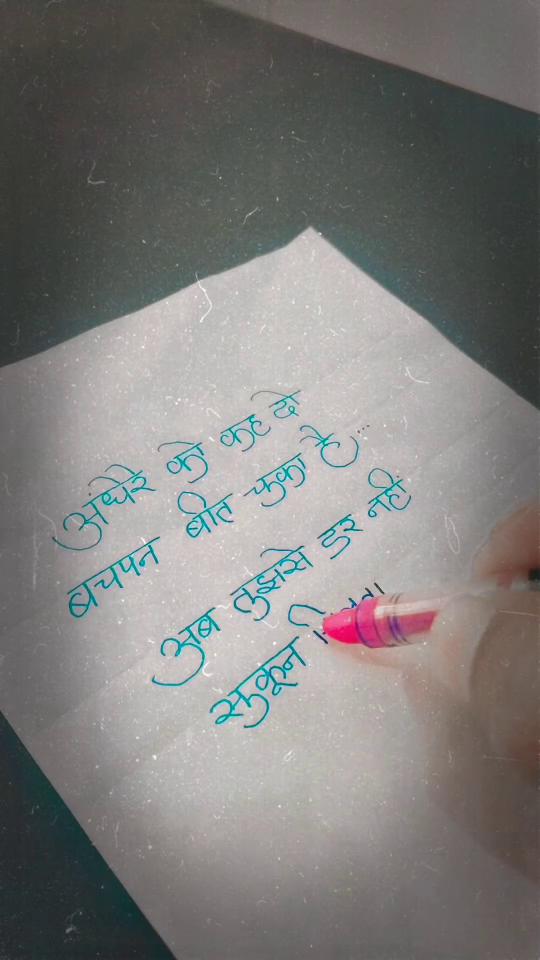 अंधेरे को कह दो
बचपन बीत चुका है...
अब तुझसे डर नहीं
सुकून